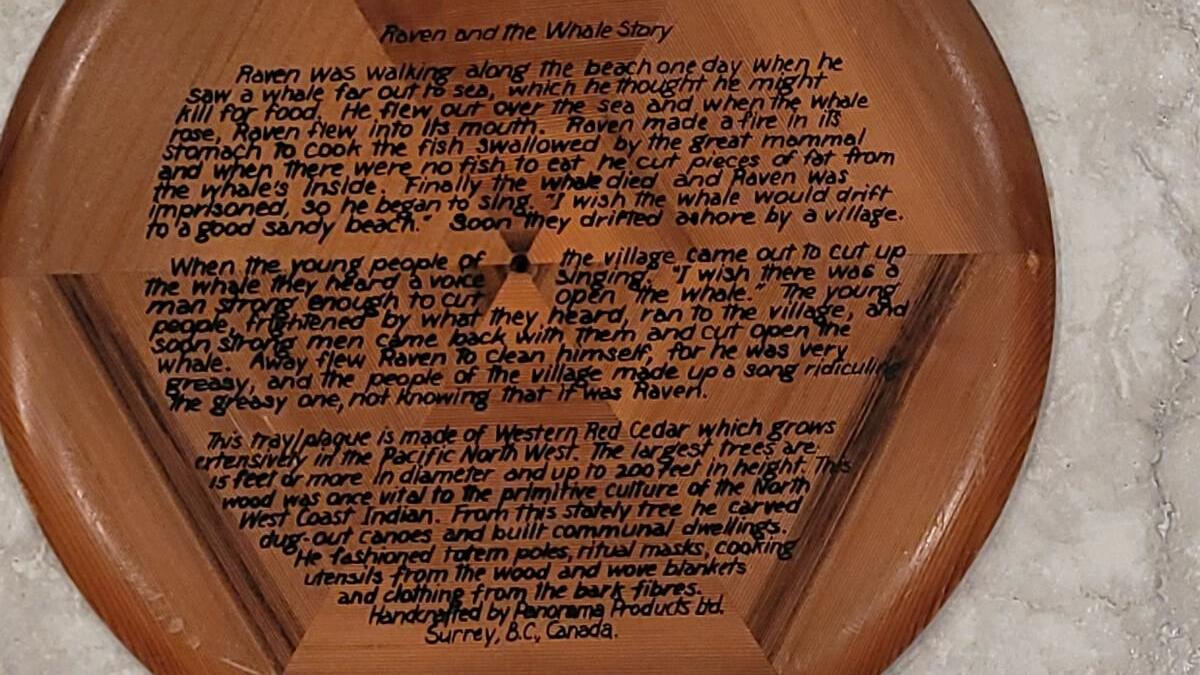 Raven and the Whale Story
Raven was walking along the beach one day when he
saw a whale far out to sea, which he thought he might
kill for food. He flew out over the sea and when the whale
rose, Raven flew into its mouth. Raven made a fire in its
stomach to cook the fish swallowed by the great mammal
and when there were no fish to eat he cut pieces of fat from
the whale's inside. Finally the whale died and Raven was
imprisoned, so he began to sing. "I wish the whale would drift
to a good sandy beach." Soon they drifted ashore by a village.
When the young people of the village came out to cut up
the whale they heard a voice singing. "I wish there was a
man strong enough to cut open the whale." The young
people, frightened by what they heard, ran to the village, and
soon strong men came back with them and cut open the
whale. Away flew Raven to clean himself, for he was very
greasy, and the people of the village made up a song ridiculing
the greasy one, not knowing that it was Raven.
This tray/plaque is made of Western Red Cedar which grows
extensively in the Pacific North West. The largest trees are
15 feet or more in diameter and up to 200 feet in height. This
wood was once vital to the primitive culture of the North
West Coast Indian. From this stately tree he carved
dug-out canoes and built communal dwellings.
He fashioned totem poles, ritual masks, cooking
utensils from the wood and wove blankets
and clothing from the bark fibres.
Handcrafted by Panorama Products Ltd.
Surrey, B.C., Canada.